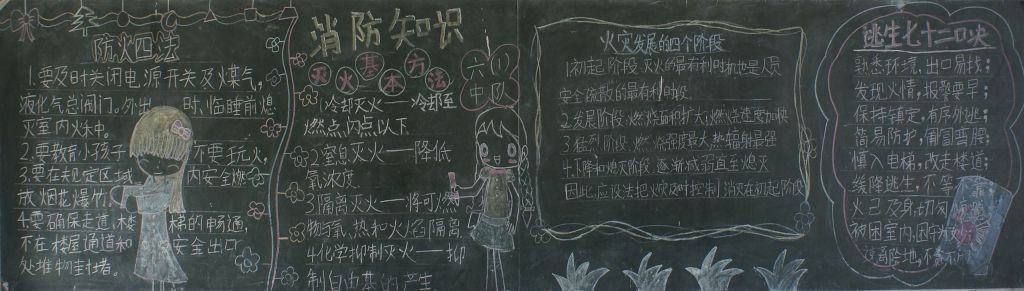 防火四法
1.要及时关闭电源开关及煤气,
液化气总阀门。外出 时,临睡前熄
灭室内火种。
2.要教育小孩子 不要玩火,
3.要在规定区域 内安全燃
放烟花爆竹。
4.要确保走道、楼 梯的畅通,
不在楼屋通道和 安全出口
处堆物封堵。
消防知识
灭火基本方法
六(1)
中队
1.冷却灭火——冷却至
燃点、闪点以下
2.窒息灭火——降低
氧浓度
3.隔离灭火——将可燃
物与氧、热和火焰隔离
4.化学抑制灭火——抑
制自由基的产生
火灾发展的四个阶段
1.初起阶段:灭火的最有利时机也是人员
安全疏散的最有利时段
2.发展阶段:燃烧面积扩大,燃烧速度加快
3.猛烈阶段:燃烧强度最大,热辐射最强
4.下降和熄灭阶段:逐渐减弱直至熄灭
因此,应设法把火灾及时控制、消灭在初起阶段
逃生七十二口决
熟悉环境,出口易找;
发现火情,报警要早;
保持镇定,有序外逃;
简易防护,匍匐弯腰;
慎入电梯,改走楼道;
缓降逃生,不等
火已及身,切勿
被困室内,固守
远离险地,不